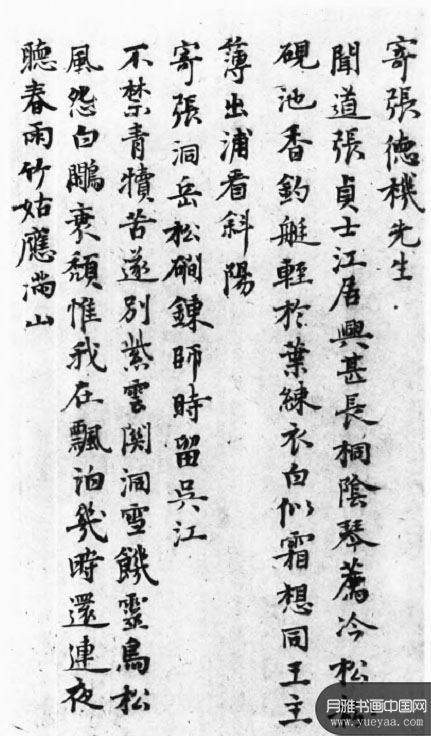 寄張德機先生
聞道張貞士江居興甚長桐陰琴薦冷松
硯池香釣艇輕於葉練衣白似霜想同王主
簿出浦看斜陽
寄張洞岳松磵鍊師時留吳江
不禁青犢苦遂別紫雲関洞雪饑靈鳥松
風怨白鷴衰頹惟我在飄泊幾時還連夜
聽春雨竹姑應滿山
月雅书画中国网
www.yueyaa.com